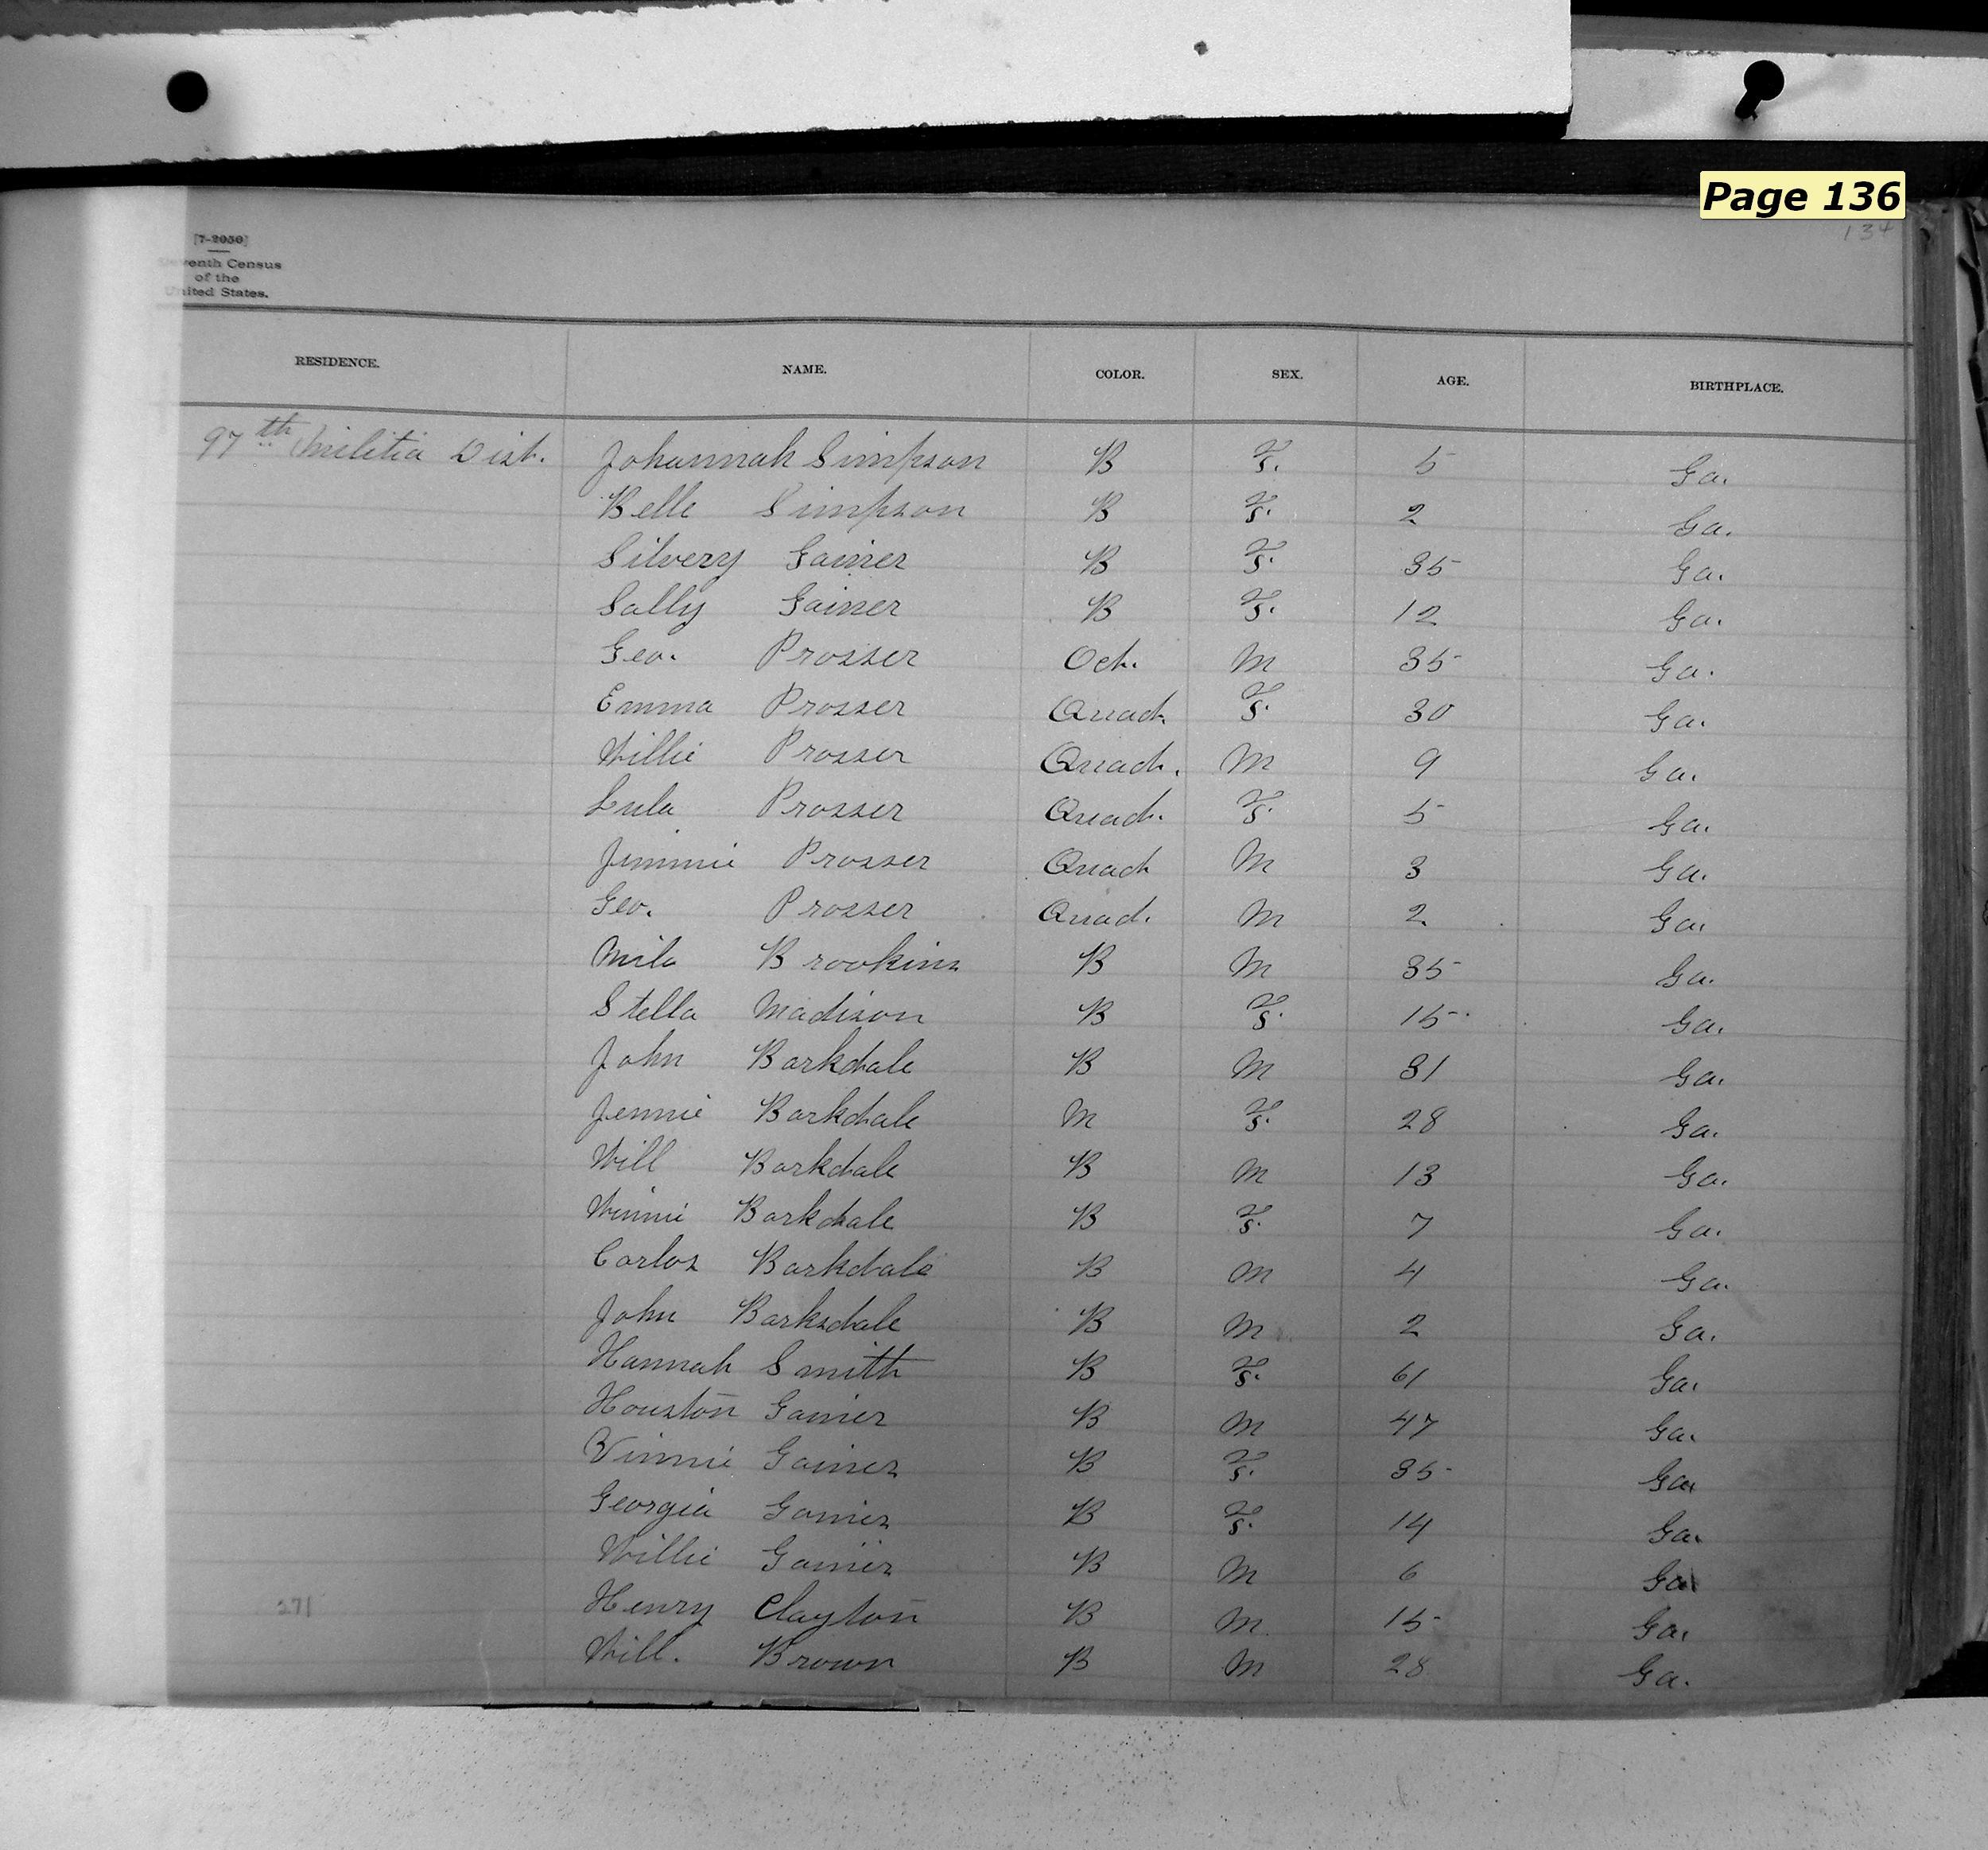 Page 136
134
[7-2050]
Eleventh Census
of the
United States.
RESIDENCE. NAME. COLOR. SEX. AGE. BIRTHPLACE.
97th Militia Dist. Johannah Simpson B F. 5 Ga.
Belle Simpson B F. 2 Ga.
Silvery Gainer B F. 35 Ga.
Sally Gainer B F. 12 Ga.
Geo. Prosser Oct. M 35 Ga.
Emma Prosser Quad. F. 30 Ga.
Willie Prosser Quad. M 9 Ga.
Lula Prosser Quad. F. 5 Ga.
Jimmie Prosser Quad M 3 Ga.
Geo. Prosser Quad. M 2 Ga.
Mila Brookins B M 35 Ga.
Stella Madison B F. 15 Ga.
John Barkdale B M 31 Ga.
Jennie Barkdale M F. 28 Ga.
Will Barkdale B M 13 Ga.
Winnie Barkdale B F. 7 Ga.
Carlos Barkdale B M 4 Ga.
John Barksdale B M 2 Ga.
Hannah Smith B F. 61 Ga.
Houston Gainer B M 47 Ga.
Vinnie Gainer B F. 35 Ga.
Georgia Gainer B F. 14 Ga.
Willie Gainer B M 6 Ga
271 Henry Clayton B M. 15 Ga.
Will. Brown B M 28 Ga.